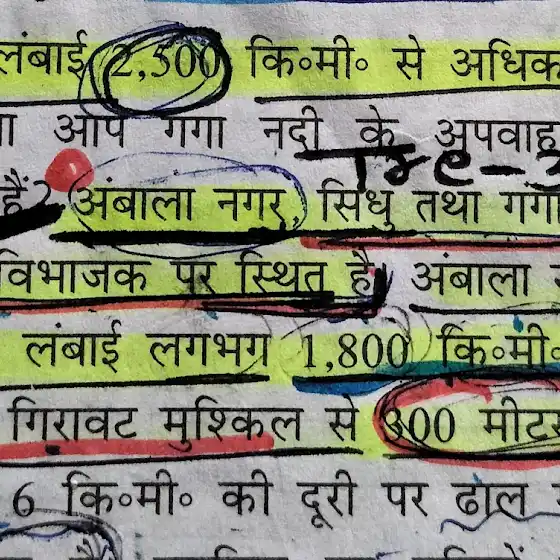 लंबाई 2,500 कि॰मी॰ से अधिक
आप गंगा नदी के अपवाह
हैं? अंबाला नगर, सिंधु तथा गंगा
विभाजक पर स्थित है। अंबाला
लंबाई लगभग 1,800 कि॰मी॰
गिरावट मुश्किल से 300 मीटर
6 कि॰मी॰ की दूरी पर ढाल